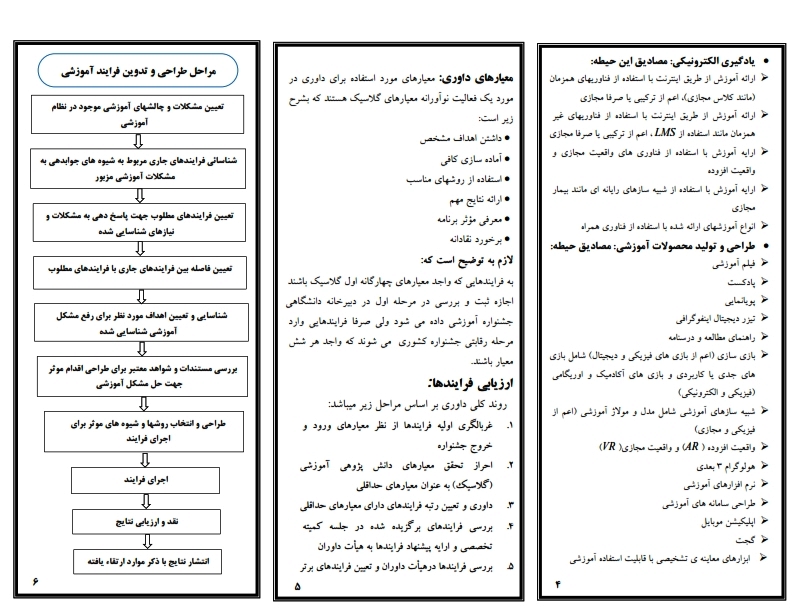 • یادگیری الکترونیکی: مصادیق این حیطه:
➢ ارائه آموزش از طریق اینترنت با استفاده از فناوریهای همزمان
(مانند کلاس مجازی)، اعم از ترکیبی یا صرفا مجازی
➢ ارائه آموزش از طریق اینترنت با استفاده از فناوریهای غیر
همزمان مانند استفاده از LMS، اعم از ترکیبی یا صرفا مجازی
➢ ارایه آموزش با استفاده از فناوری های واقعیت مجازی و
واقعیت افزوده
➢ ارایه آموزش با استفاده از شبیه سازهای رایانه ای مانند بیمار
مجازی
➢ انواع آموزشهای ارائه شده با استفاده از فناوری همراه
• طراحی و تولید محصولات آموزشی: مصادیق حیطه:
➢ فیلم آموزشی
➢ پادکست
➢ پویانمایی
➢ تیزر دیجیتال اینفوگرافی
➢ راهنمای مطالعه و درسنامه
➢ بازی سازی (اعم از بازی های فیزیکی و دیجیتال) شامل بازی
های جدی یا کاربردی و بازی های آکادمیک و اوریگامی
(فیزیکی و الکترونیکی)
➢ شبیه سازهای آموزشی شامل مدل و مولاژ آموزشی (اعم از
فیزیکی و مجازی)
➢ واقعیت افزوده ( AR) و واقعیت مجازی( VR)
➢ هولوگرام ۳ بعدی
➢ نرم افزارهای آموزشی
➢ طراحی سامانه های آموزشی
➢ اپلیکیشن موبایل
➢ گجت
➢ ابزارهای معاینه ی تشخیصی با قابلیت استفاده آموزشی
۴
معیارهای داوری: معیارهای مورد استفاده برای داوری در
مورد یک فعالیت نوآورانه معیارهای گلاسیک هستند که بشرح
زیر است:
• داشتن اهداف مشخص
• آماده سازی کافی
• استفاده از روشهای مناسب
• ارائه نتایج مهم
• معرفی مؤثر برنامه
• برخورد نقادانه
لازم به توضیح است که:
به فرایندهایی که واجد معیارهای چهارگانه اول گلاسیک باشند
اجازه ثبت و بررسی در مرحله اول در دبیرخانه دانشگاهی
جشنواره آموزشی داده می شود ولی صرفا فرایندهایی وارد
مرحله رقابتی جشنواره کشوری می شوند که واجد هر شش
معیار باشند.
ارزیابی فرایندها:
روند کلی داوری بر اساس مراحل زیر میباشد:
۱. غربالگری اولیه فرایندها از نظر معیارهای ورود و
خروج جشنواره
۲. احراز تحقق معیارهای دانش پژوهی آموزشی
(گلاسیک) به عنوان معیارهای حداقلی
۳. داوری و تعیین رتبه فرایندهای دارای معیارهای حداقلی
۴. بررسی فرایندهای برگزیده شده در جلسه کمیته
تخصصی و ارایه پیشنهاد فرایندها به هیأت داوران
۵. بررسی فرایندها درهیأت داوران و تعیین فرایندهای برتر
۵
مراحل طراحی و تدوین فرایند آموزشی
تعیین مشکلات و چالشهای آموزشی موجود در نظام
آموزشی
شناسائی فرایندهای جاری مربوط به شیوه های جوابدهی به
مشکلات آموزشی مزبور
تعیین فرایندهای مطلوب جهت پاسخ دهی به مشکلات و
نیازهای شناسایی شده
تعیین فاصله بین فرایندهای جاری با فرایندهای مطلوب
شناسایی و تعیین اهداف مورد نظر برای رفع مشکل
آموزشی شناسایی شده
بررسی مستندات و شواهد معتبر برای طراحی اقدام موثر
جهت حل مشکل آموزشی
طراحی و انتخاب روشها و شیوه های موثر برای
اجرای فرایند
اجرای فرایند
نقد و ارزیابی نتایج
انتشار نتایج با ذکر موارد ارتقاء یافته
۶